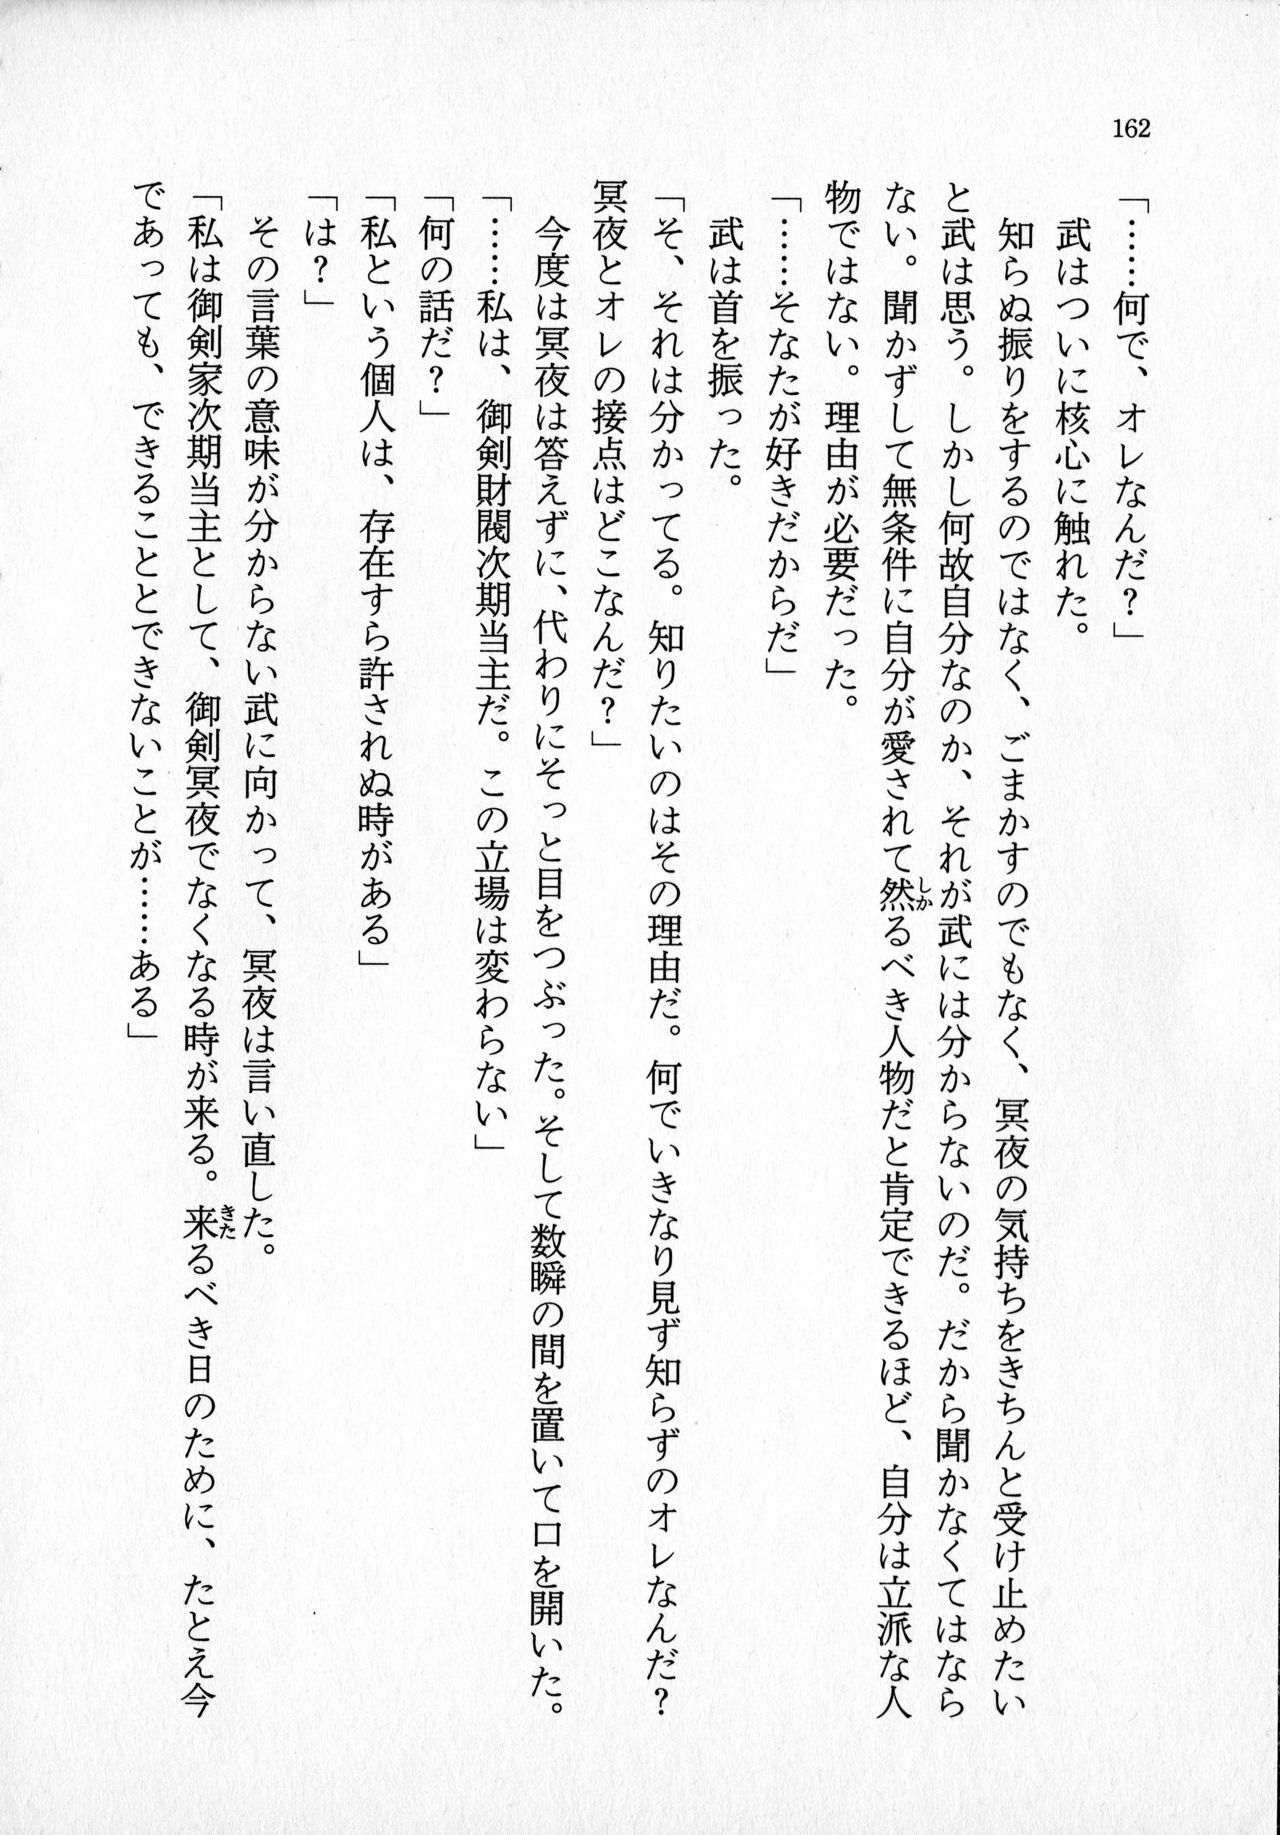 162
「……何で、オレなんだ？」
武はついに核心に触れた。
知らぬ振りをするのではなく、ごまかすのでもなく、冥夜の気持ちをきちんと受け止めたい
と武は思う。しかし何故自分なのか、それが武には分からないのだ。だから聞かなくてはなら
ない。聞かずして無条件に自分が愛されて然るべき人物だと肯定できるほど、自分は立派な人
物ではない。理由が必要だった。
「……そなたが好きだからだ」
武は首を振った。
「そ、それは分かってる。知りたいのはその理由だ。何でいきなり見ず知らずのオレなんだ？
冥夜とオレの接点はどこなんだ？」
今度は冥夜は答えずに、代わりにそっと目をつぶった。そして数瞬の間を置いて口を開いた。
「……私は、御剣財閥次期当主だ。この立場は変わらない」
「何の話だ？」
「私という個人は、存在すら許されぬ時がある」
「は？」
その言葉の意味が分からない武に向かって、冥夜は言い直した。
「私は御剣家次期当主として、御剣冥夜でなくなる時が来る。来るべき日のために、たとえ今
であっても、できることとできないことが……ある」